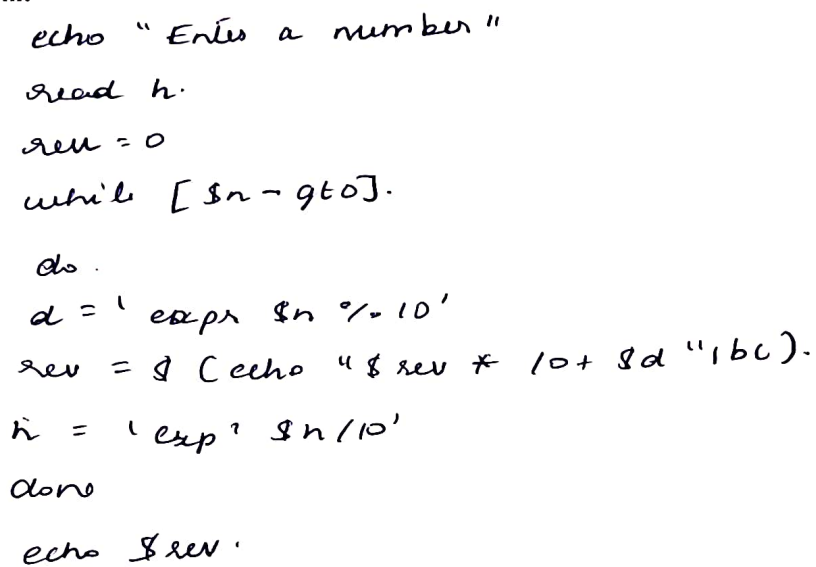 echo "Enter a number"
read n.
rev = 0
while [ $n - gt0].
do.
d = ' expr $n % 10'
rev = $ ( echo "$ rev * 10+ $d "| bc ).
n = ' expr $n / 10'
done
echo $ rev.